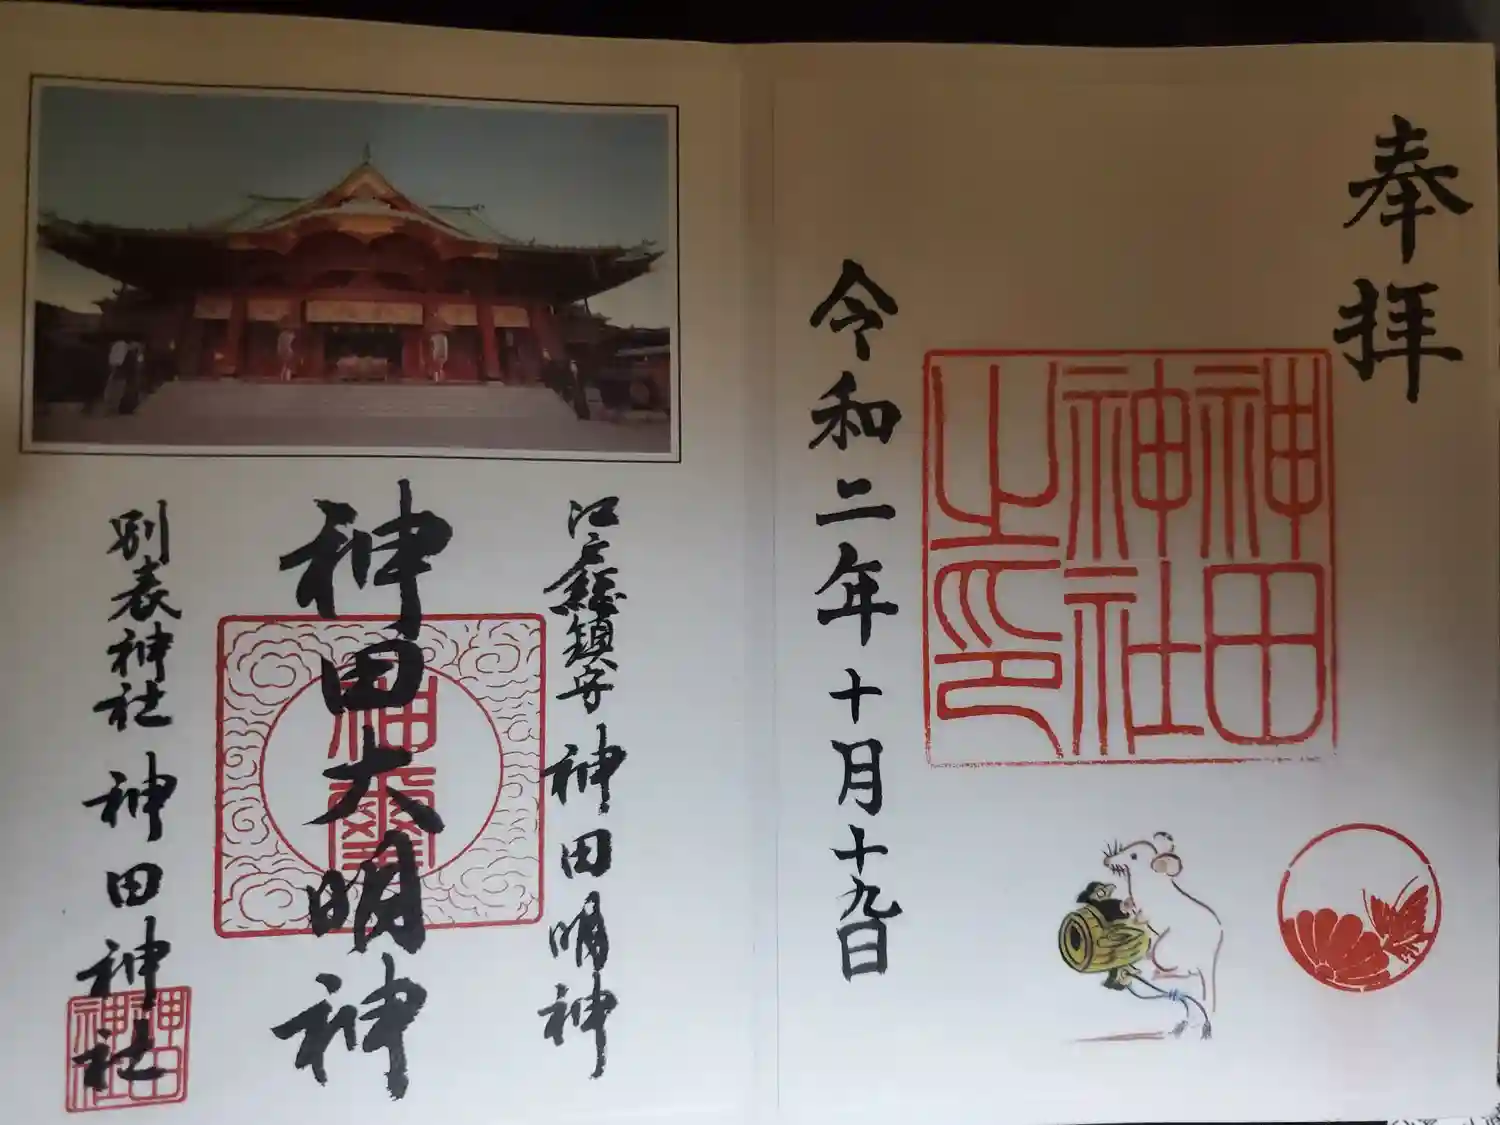 奉拝
神田
神社
之印
令和二年十月十九日
江戸総鎮守 神田明神
神田大明神
神璽
別表神社 神田神社
神田
神社